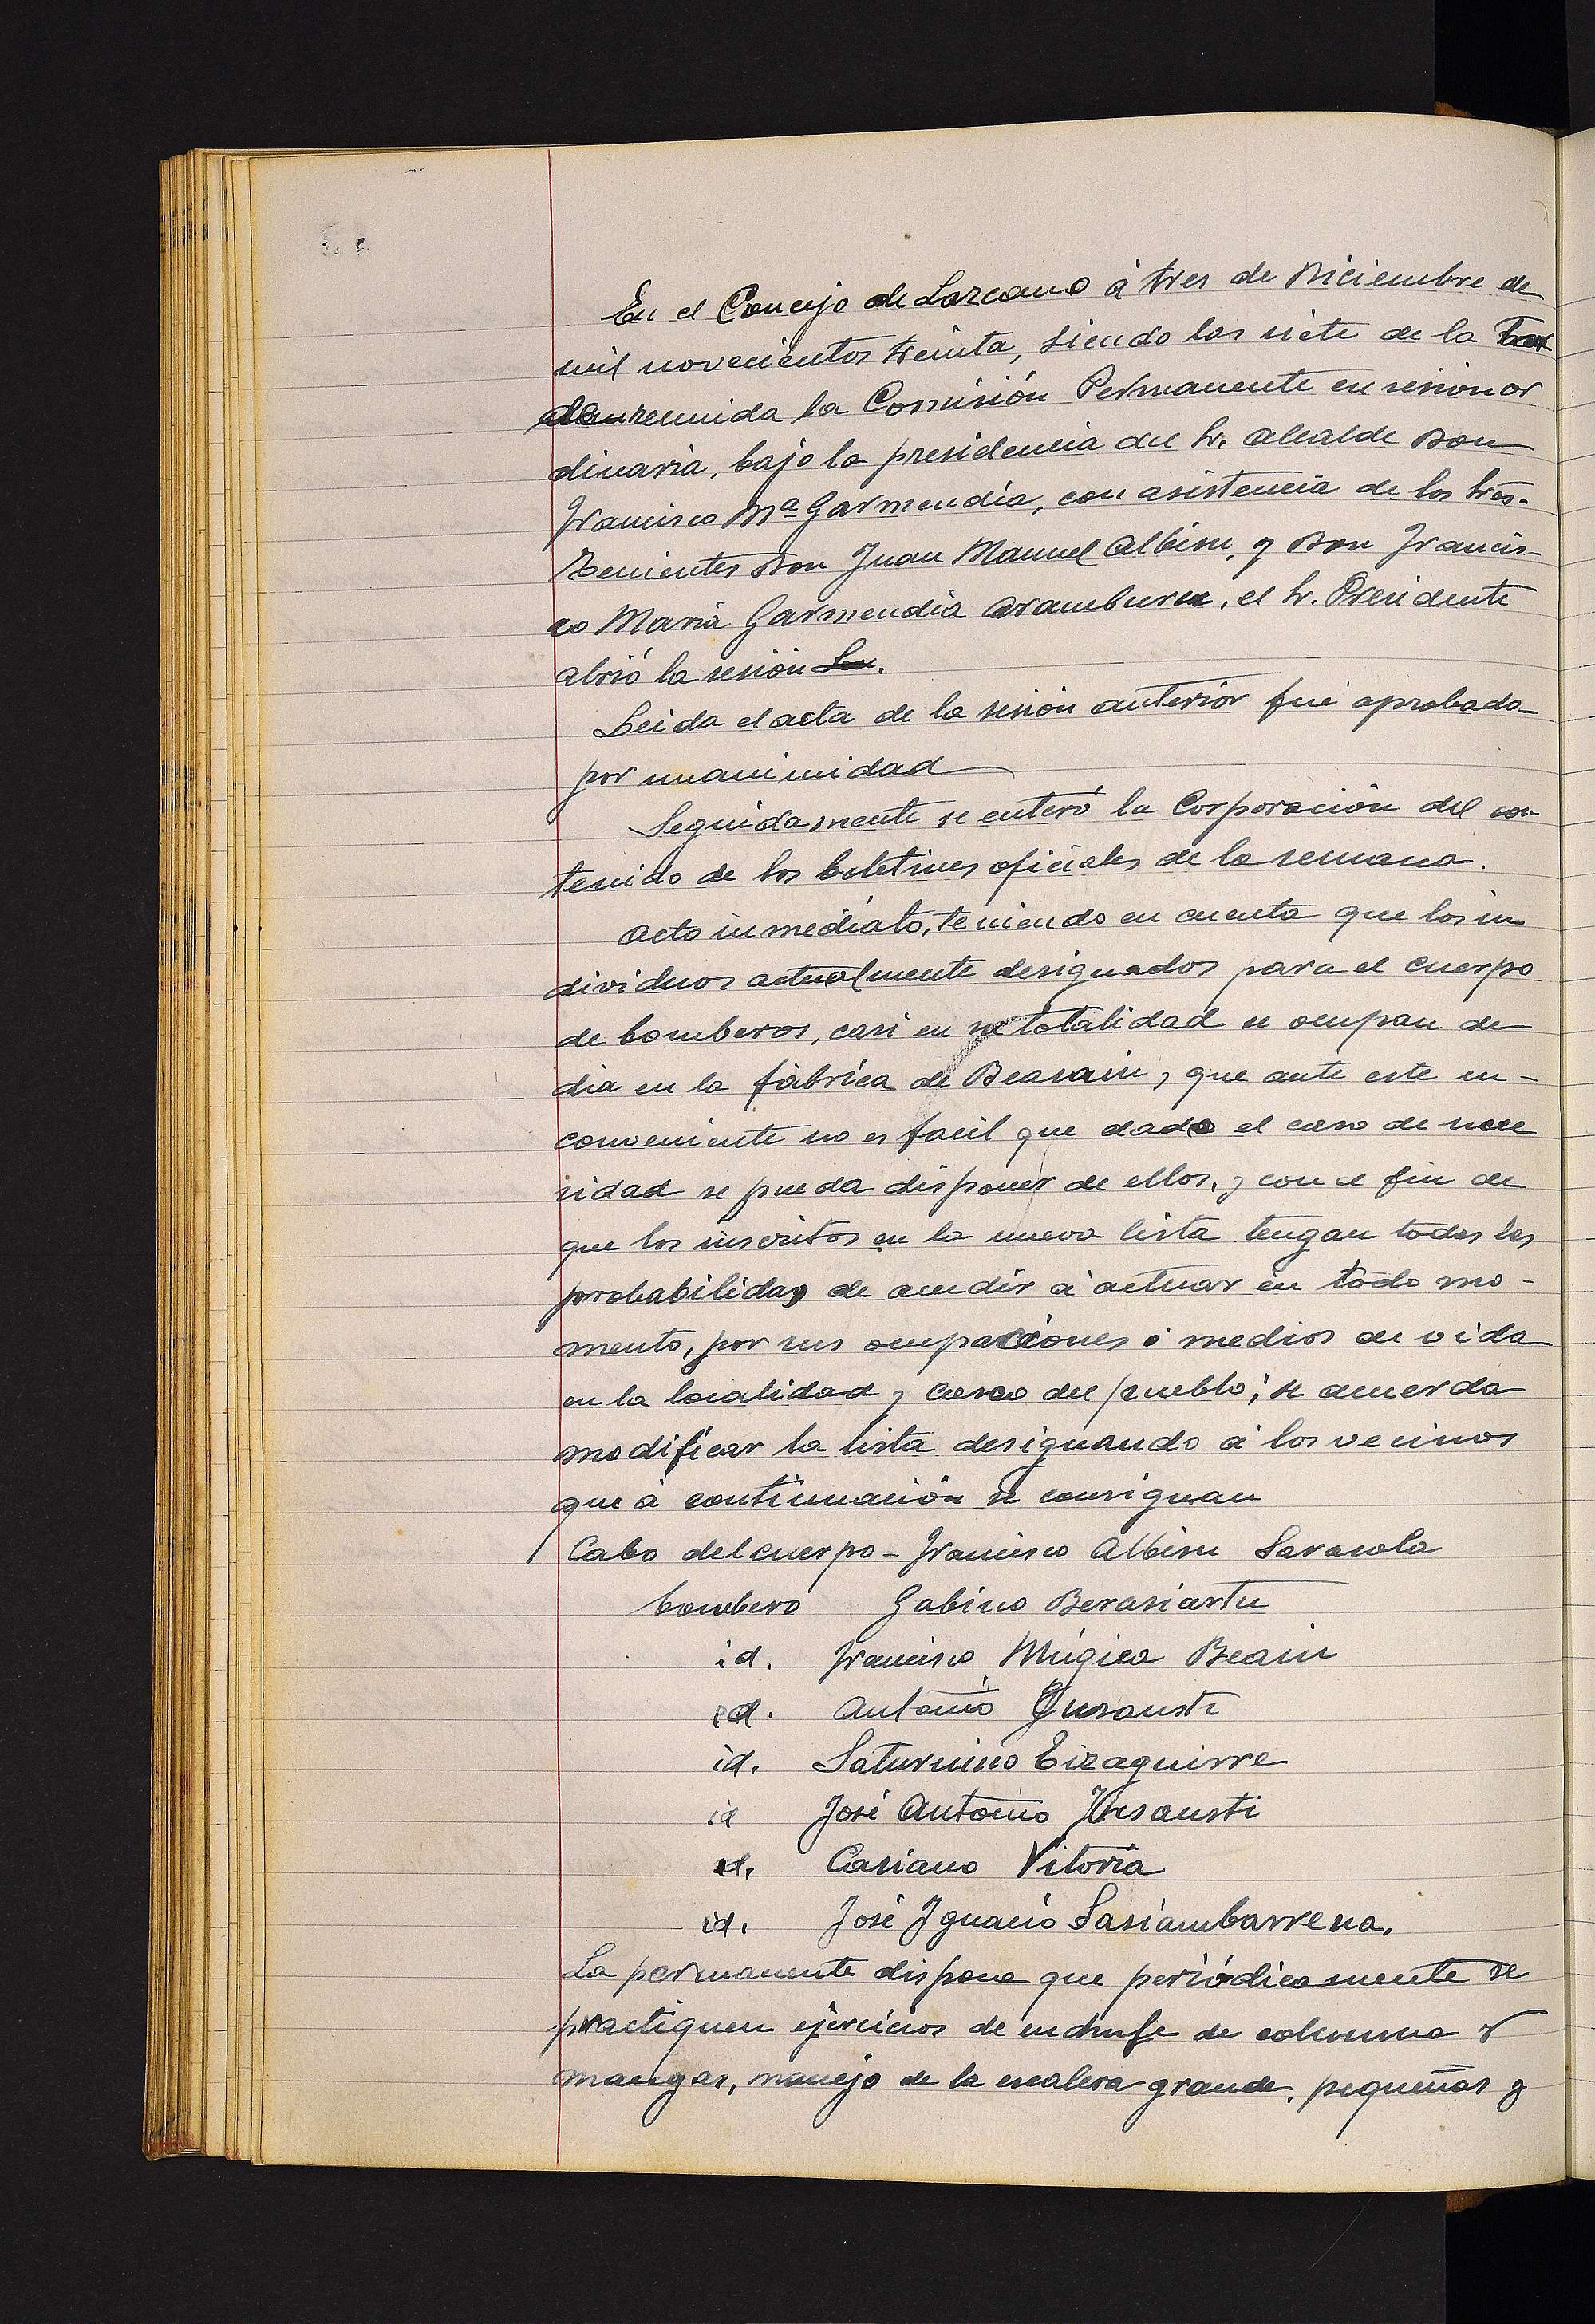 En el Concejo de Lazcano á tres de Diciembre de
mil novecientos treinta, siendo las siete de la tar
de reunida la Comisión Permanente en sesion or
dinaria, bajo la presidencia del Sr. Alcalde Don
Francisco Mª Garmendia, con asistencia de los Sres.
Tenientes Don Juan Manuel Albisu, y Don Francis-
co Maria Garmendia Aramburu, el Sr. Presidente
abrió la sesión.
Leida el acta de la sesión anterior fué aprobada
por unanimidad
Seguidamente se enteró la Corporación del con
tenido de los boletines oficiales de la semana.
Acto inmediato, teniendo en cuenta que los in
dividuos actualmente designados para el cuerpo
de bomberos, casi en su totalidad se ocupan de
dia en la fábrica de Beasain, y que ante este in-
conveniente no es facil que dado el caso de nece
sidad se pueda disponer de ellos, y con el fin de
que los inscritos en la nueva lista tengan todas las
probabilidas de acudir á actuar en todo mo-
mento, por sus ocupaciones ó medios de vida
en la localidad y casco del pueblo; se acuerda
modificar la lista designando á los vecinos
que á continuación se consignan
Cabo del cuerpo - Francisco Albisu Sarasola
bombero Gabino Berasiartu
id. Francisco Múgica Beain
id. Antonio Insausti
id. Saturnino Eizaguirre
id José Antonio Insausti
id. Casiano Vitoria
id. José Ignacio Sasiambarrena.
La permanente dispone que periódicamente se
practiquen ejercicios de enchufe de columna y
mangas, manejo de la escalera grande, pequeñas y